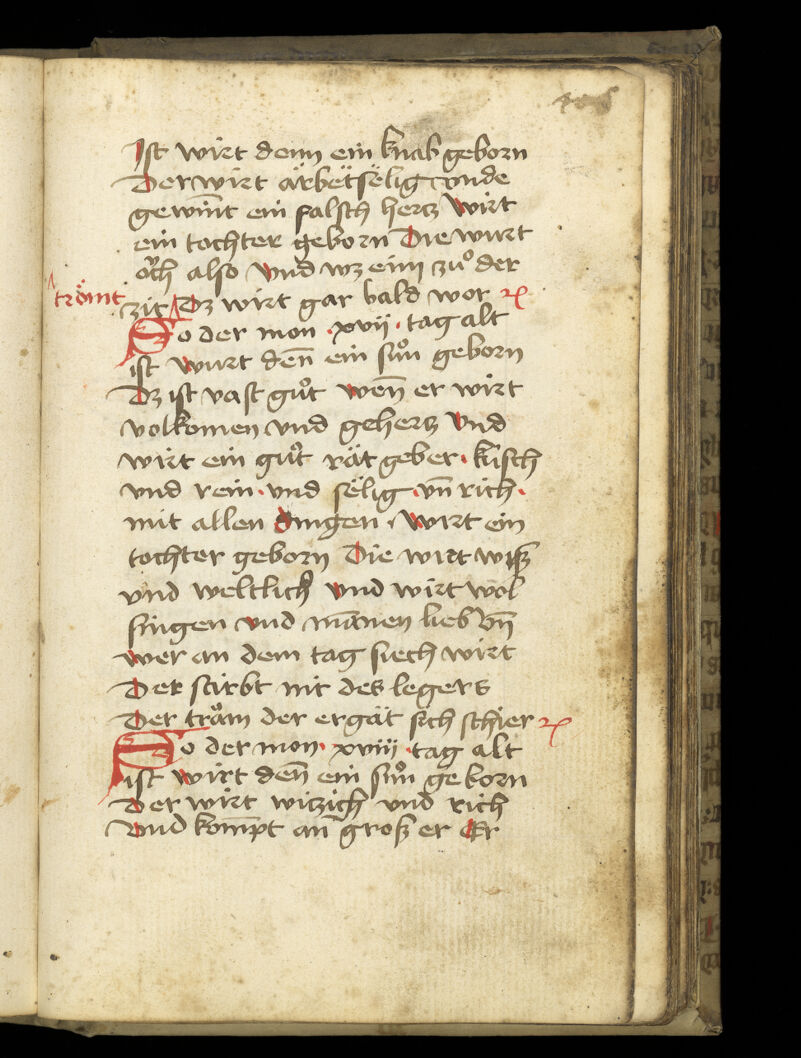 Ist wirt denn ein knab geborn
Der wirt ärbetsëlig vnde
gewint̄ ein falsch hertz wirt
ein tochter geborn Die wurt
oͮch also vnd wz einn zuͦ der
troͤmt
zit Dz wirt gar bald wor
So der mon · xvii · tag alt
ist wurt den̄ ein suͦn geborn
Dz ist vast guͦt wen̄ er wirt
volkomen vnd gehertz vnd
wirt ein guͦt rät geber · küsch
vnd rein · vnd sëlig · vn̄ rich ·
mit allen dingen · Wirt ein
tochter geborn Die wirt wiß
vnd weltlich vnd wirt wol
singen vnd man̄en lieb vn̄
wer an dem tag siech wirt
Der stirbt nit des legers
Der troͮm der ergät sich schier
So der mon · xviii · tag alt
ist wirt den̄ ein suͦn geborn
Der wirt witzich vnd rich
vnd kom̄pt an groß er Er